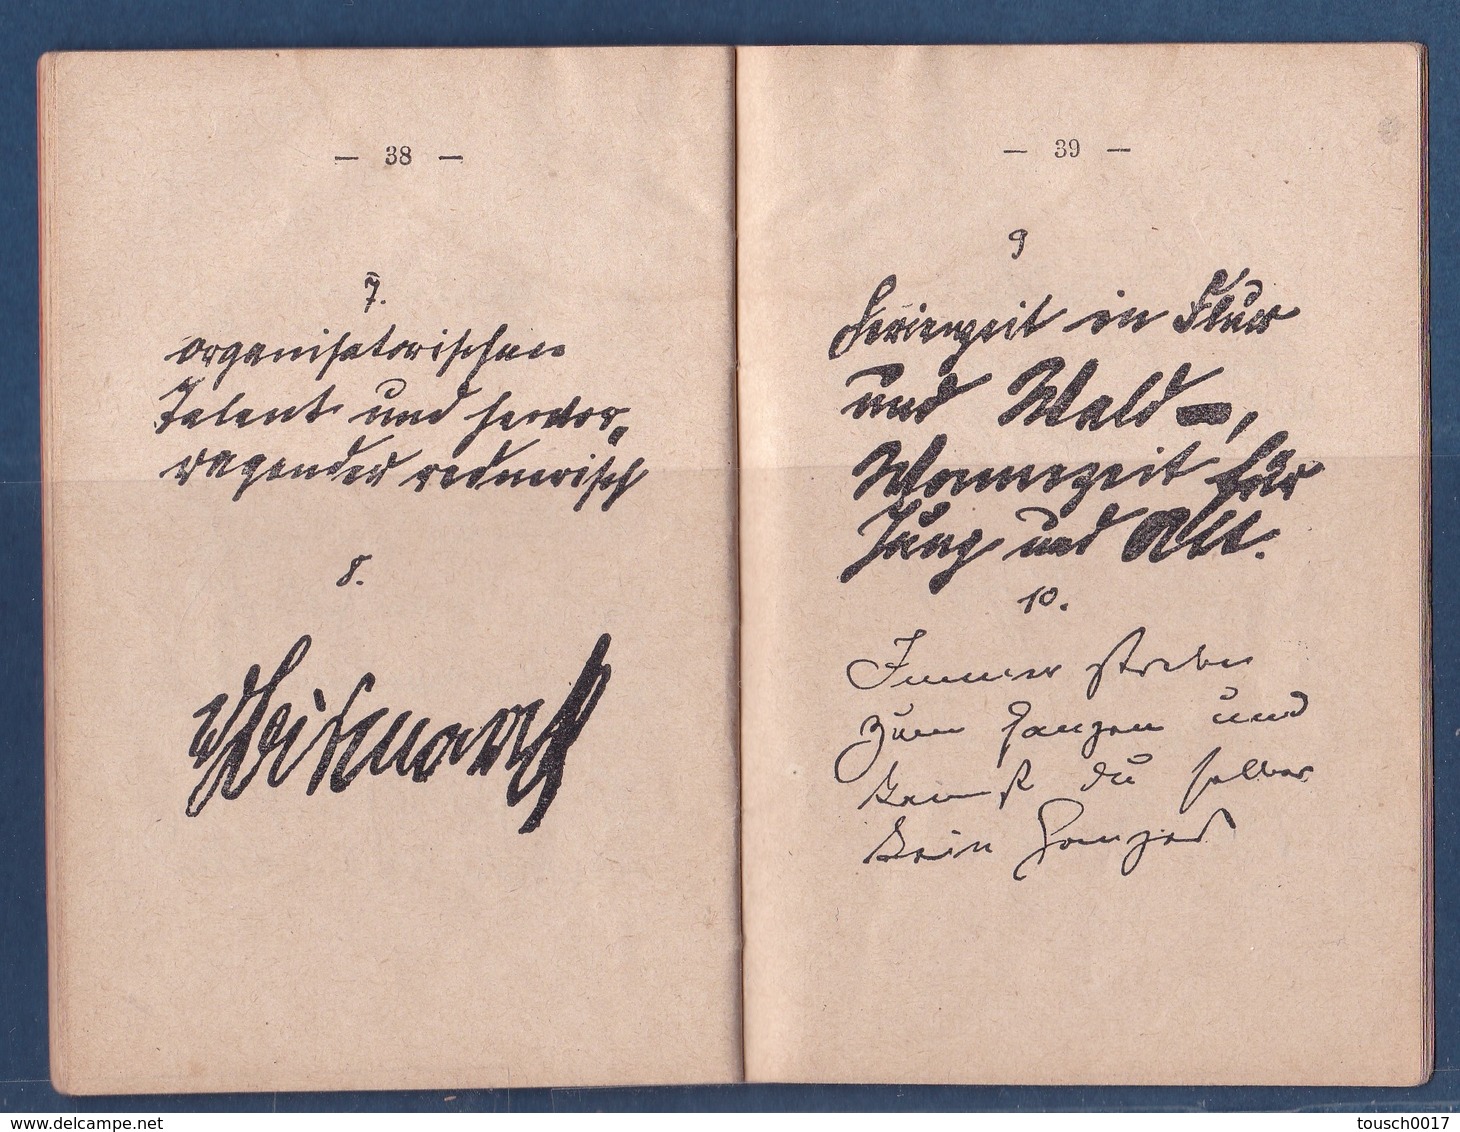 — 38 —
7.
organisatorischen
Talent und hervor-
ragender rednerisch
8.
v Bismarck
— 39 —
9
Ferienzeit in Flur
und Wald –,
Wonnezeit für
Jung und Alt.
10.
Immer strebe
zum Ganzen und
kannst du selber
kein Ganzes
www.delcampe.net
tousch0017